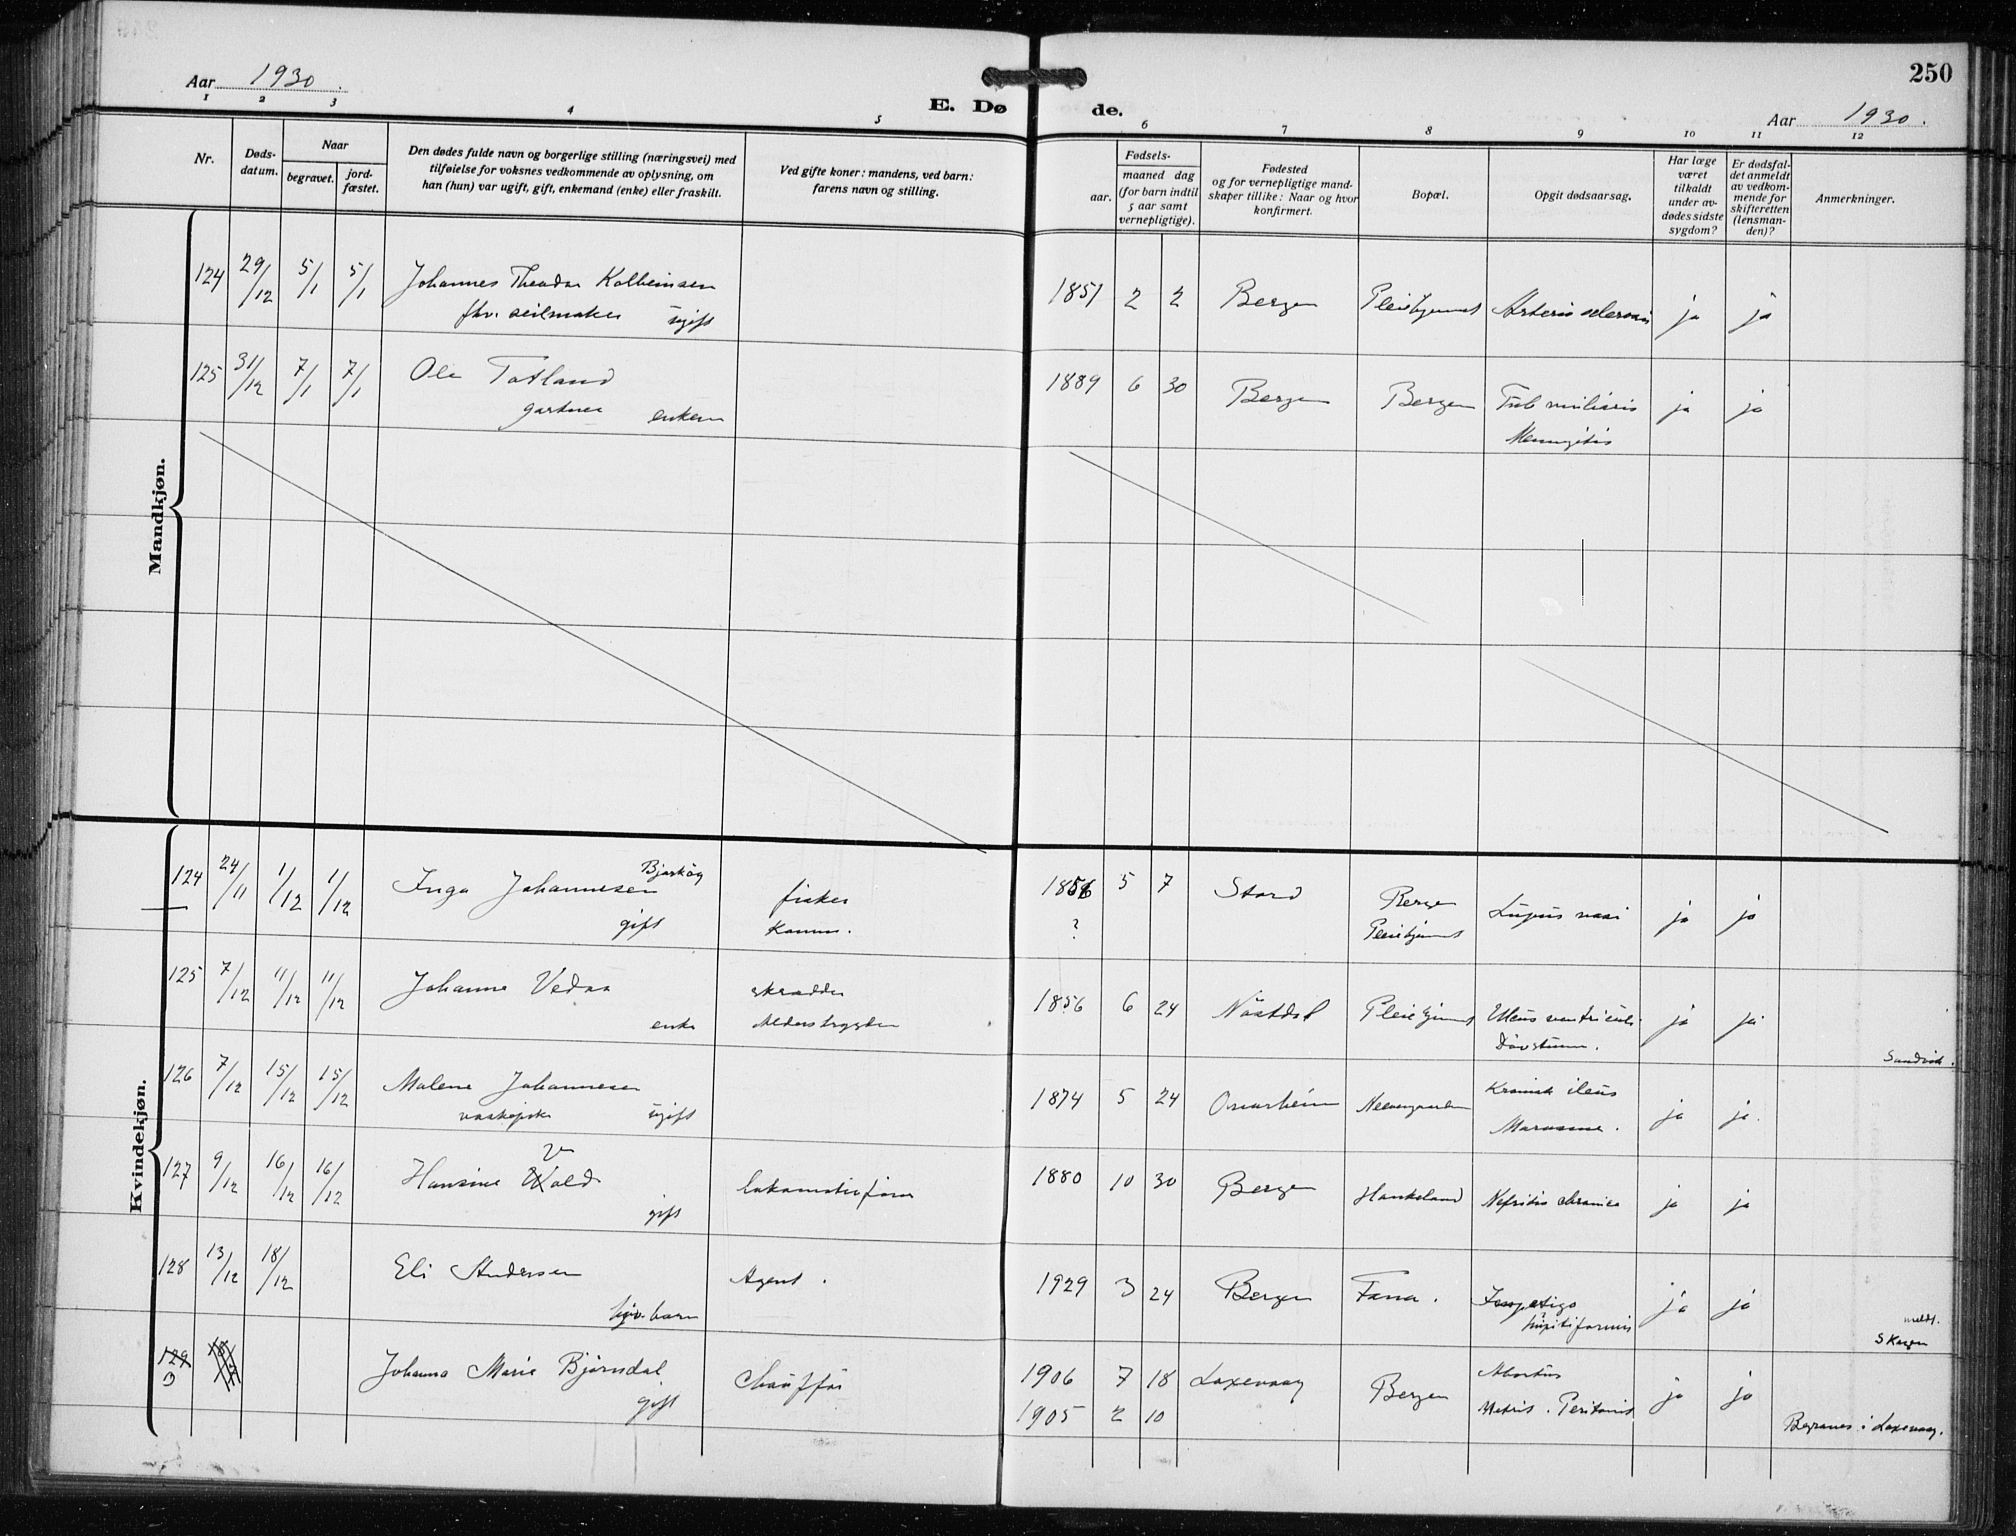 250
Aar 1930.
E. Dø de.
Aar 1930.
1 2 3 4 5 6 7 8 9 10 11 12
Nr.
Døds-
datum.
Naar
begravet.
jord-
fæstet.
Den dødes fulde navn og borgerlige stilling (næringsvei) med
tilføielse for voksnes vedkommende av oplysning, om
han (hun) var ugift, gift, enkemand (enke) eller fraskilt.
Ved gifte koner: mandens, ved barn:
farens navn og stilling.
Fødsels-
aar.
maaned dag
(for barn indtil
5 aar samt
vernepligtige).
Fødested
og for vernepligtige mand-
skaper tillike: Naar og hvor
konfirmert.
Bopæl.
Opgit dødsaarsag.
Har læge
været
tilkaldt
under av-
dødes sidste
sygdom?
Er dødsfal-
det anmeldt
av vedkom-
mende for
skifteretten
(lensman-
den)?
Anmerkninger.
Mandkjøn.
124 29/12 5/1 5/1 Johannes Theodor Kolbeinsen 1851 2 2 Bergen Pleiehjemmet ja ja
fhv. seilmaker ugift
125 31/12 7/1 7/1 Ole Totland 1889 6 30 Bergen Bergen Tub miliaris ja ja
gartner enkem
Meningitis
Kvindekjøn.
Bjarkøy
124 24/11 1/12 1/12 Inga Johannesen fisker 1856 5 7 Stord Bergen Lupus nasi ja ja
gift ? Pleiehjemmet
125 7/12 11/12 11/12 Johanne Vedaa skrædder 1856 6 24 Pleiehjemmet Ulcus ventriculi ja ja
enke Døvstum.
Sandvik.
126 7/12 15/12 15/12 Malene Johannesen 1874 5 24 Onarheim Kronisk ileus ja ja.
ugift
V
127 9/12 16/12 16/12 Hansine Wold 1880 10 30 Bergen Haukeland Nefritis chronica ja ja
gift
128 13/12 18/12 Eli Andersen Agent. 1929 3 24 Bergen Fana. Impetigo ja ja
barn
meldt.
Skagen
129 Johanna Marie Bjørndal Chauffør 1906 7 18 Laxevaag Bergen Abortus ja ja
gift 1905 2 10 Metrit. Peritonit
Begraves i Laxevaag.